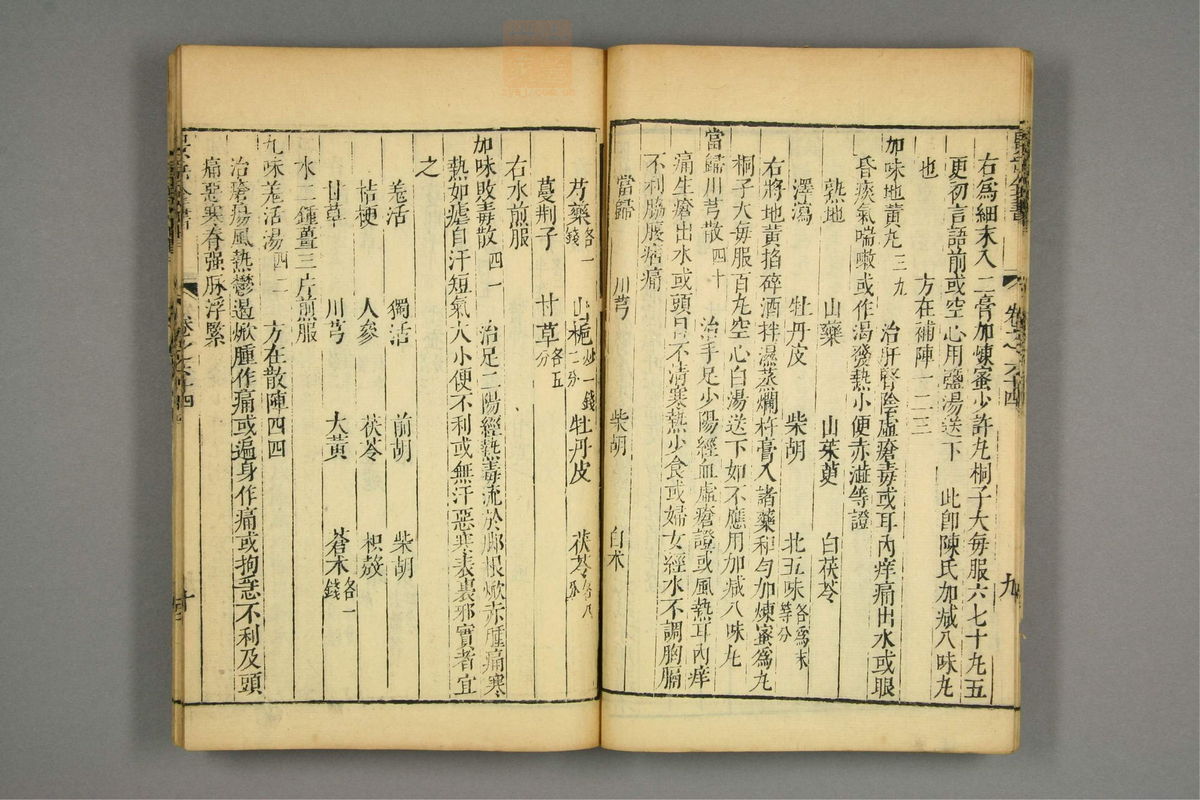 右爲細末入二膏加煉蜜少許丸桐子大每服六七十丸五
更初言語前或空心用鹽湯送下 此卽陳氏加減八味丸
也 方在補陣一二三
加味地黃丸 三九 治肝腎陰虛瘡毒或耳內痒痛出水或眼
昏痰氣喘嗽或作渴發熱小便赤澁等證
熟地 山藥 山茱萸 白茯苓
澤瀉 牡丹皮 柴胡 北五味各爲末等分
右將地黃掐碎酒拌濕蒸爛杵膏入諸藥和勻加煉蜜爲丸
桐子大每服百丸空心白湯送下如不應用加減八味丸
當歸川芎散 四十 治手足少陽經血虛瘡證或風熱耳內痒
痛生瘡出水或頭目不清寒熱少食或婦女經水不調胸膈
不利脇腹痞痛
當歸 川芎 柴胡 白朮
芍藥各一錢 山梔炒一錢二分 牡丹皮 茯苓各八分
蔓荆子 甘草各五分
右水煎服
加味敗毒散 四一 治足三陽經熱毒流於脚根焮赤腫痛寒
熱如瘧自汗短氣大小便不利或無汗惡寒表裏邪實者宜
之
羗活 獨活 前胡 柴胡
桔梗 人參 茯苓 枳殼
甘草 川芎 大黃 蒼朮各一錢
水二鍾薑三片煎服
九味羗活湯 四二 方在散陣四四
治瘡瘍風熱鬱遏焮腫作痛或遍身作痛或拘急不利及頭
痛惡寒脊强脉浮緊
卷之六十四
九
卷之六十四
十